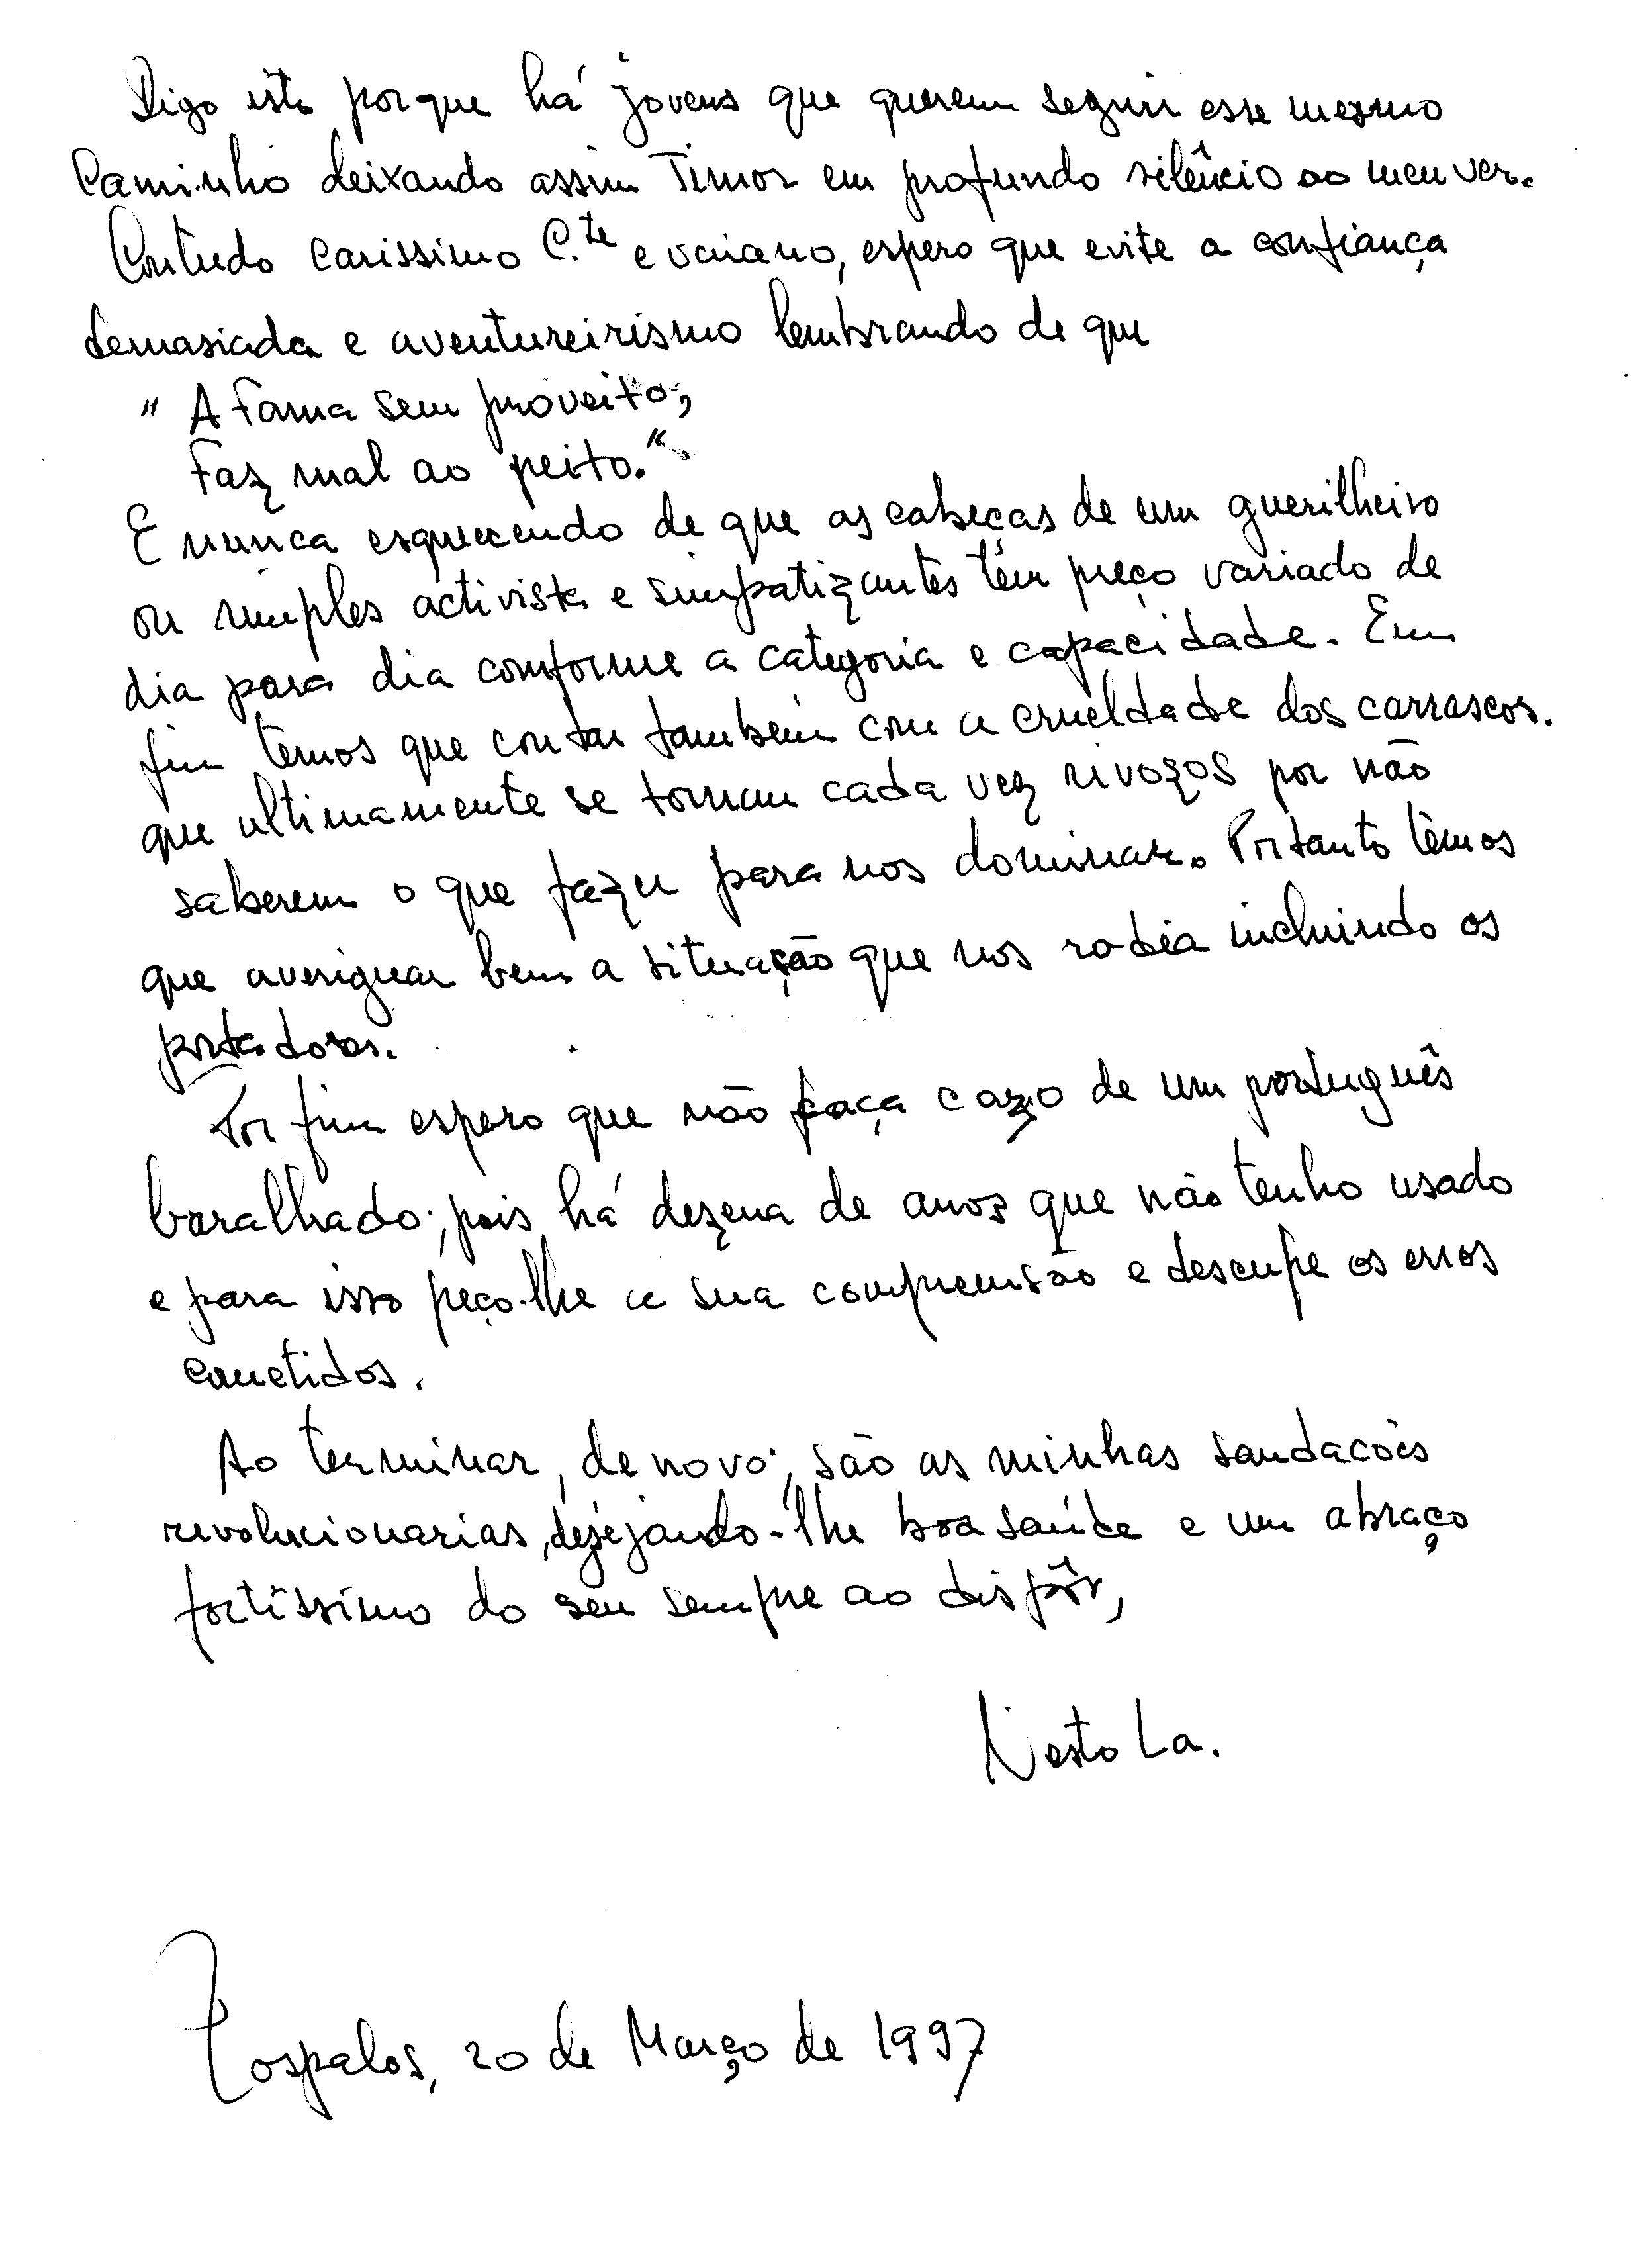 Digo isto porque há jovens que querem seguir esse mesmo
Caminho deixando assim Timor em profundo silêncio ao meu ver.
Contudo Carissimo C.te e vaiano, espero que evite a confiança
demasiada e aventureirismo lembrando de que
" A Fama sem proveito,
Faz mal ao peito."
E nunca esquecendo de que as cabeças de um guerilheiro
ou simples activista e simpatizantes têm preço variado de
dia para dia comforme a categoria e capacidade. Em
fim temos que contar também com a crueldade dos carrascos.
que ultimamente se tornam cada vez rivozos por não
saberem o que fazer para nos dominar. Portanto têmos
que averiguar bem a situação que nos rodeia incluindo os
portadores.
Por fim espero que não faça cazo de um português
baralhado; pois há dezena de anos que não tenho usado
e para isso peço-lhe a sua compreensão e desculpe os erros
cometidos.
Ao terminar, de novo, são as minhas saudacões
revolucionarias, dezejando-lhe boa saúde e um abraço
fortissimo do seu sempre ao dispôr,
Nesto La.
Lospalos, 20 de Março de 1997